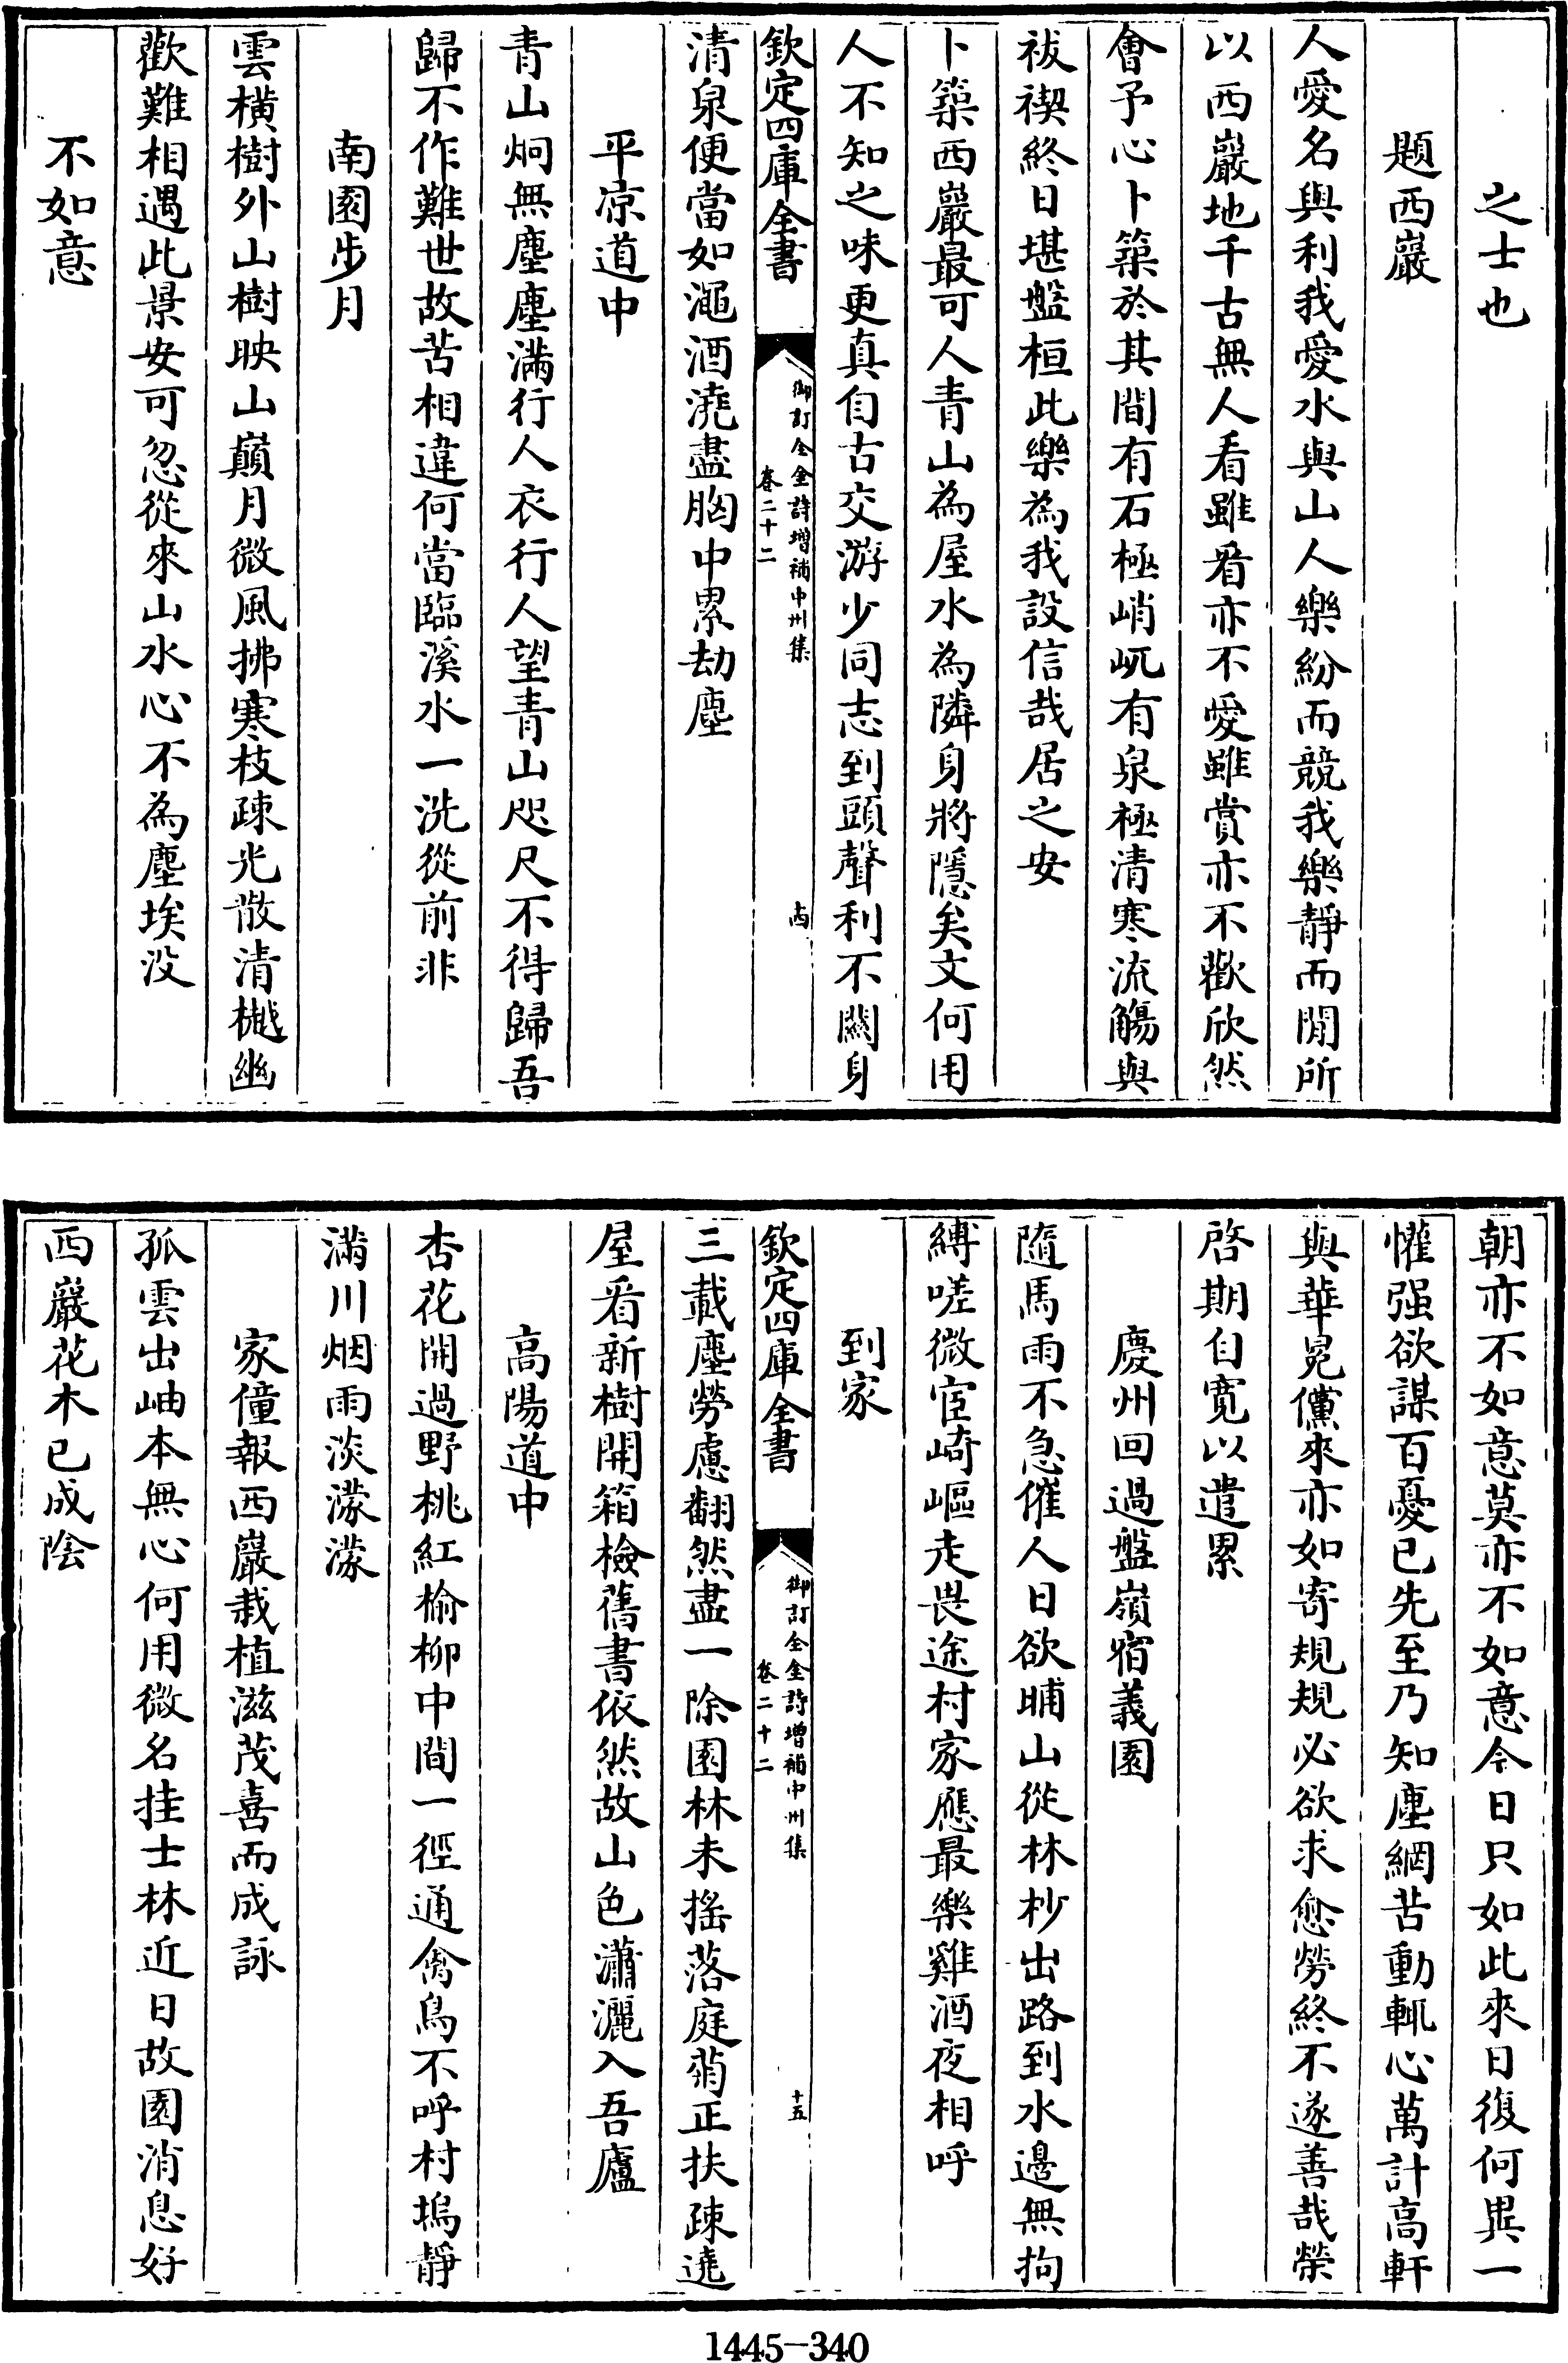 之士也
題西巖
人愛名與利我愛水與山人樂紛而競我樂靜而閒所
以西巖地千古無人看雖看亦不愛雖賞亦不歡欣然
會予心卜築於其間有石極峭屼有泉極清寒流觴與
祓禊終日堪盤桓此樂為我設信哉居之安
卜築西巖最可人青山為屋水為隣身將隱矣文何用
人不知之味更真自古交游少同志到頭聲利不關身
欽定四庫全書
御訂全金詩增補中州集
卷二十二
清泉便當如澠酒澆盡胸中累劫塵
平凉道中
青山炯無塵塵滿行人衣行人望青山咫尺不得歸吾
歸不作難世故苦相違何當臨溪水一洗從前非
南園步月
雲橫樹外山樹映山巔月微風拂寒枝疎光散清樾幽
歡難相遇此景安可忽從來山水心不為塵埃没
不如意
朝亦不如意莫亦不如意今日只如此來日復何異一
懽强欲謀百憂已先至乃知塵網苦動輒心萬計高軒
與華冕儻來亦如寄規規必欲求愈勞終不遂善哉榮
啓期自寬以遣累
慶州回過盤嶺宿義園
隨馬雨不急催人日欲晡山從林杪出路到水邊無拘
縛嗟微宦崎嶇走畏途村家應最樂雞酒夜相呼
到家
欽定四庫全書
御訂全金詩增補中州集
卷二十二
十五
三載塵勞慮翻然盡一除園林未搖落庭菊正扶疎遶
屋看新樹開箱檢舊書依然故山色瀟灑入吾廬
高陽道中
杏花開過野桃紅榆柳中間一徑通禽鳥不呼村塢靜
滿川烟雨淡濛濛
家僮報西巖栽植滋茂喜而成詠
孤雲出岫本無心何用微名挂士林近日故園消息好
西巖花木已成陰
1445-340